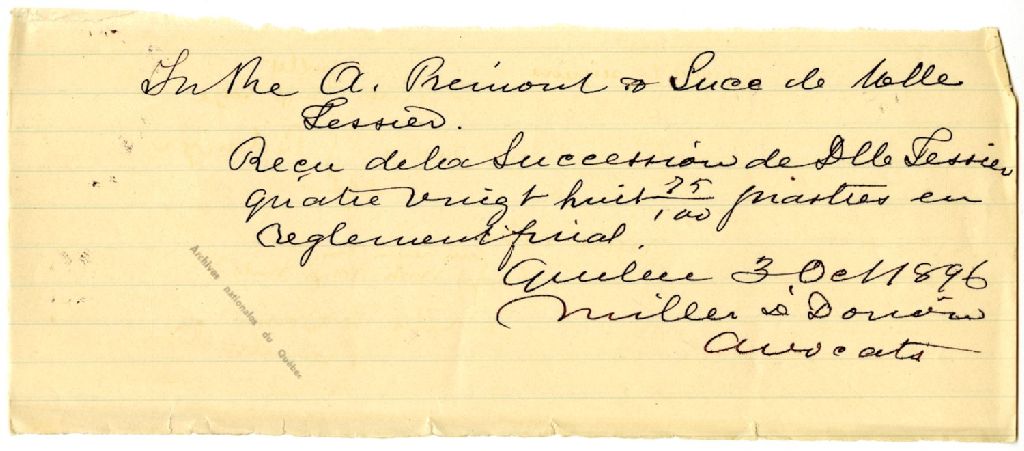 In Re A. Prémont & Succ de Mlle
Tessier.
Reçu de la Succession de Dlle Tessier
quatre vingt huit 75/100 piastres en
règlement final.
Québec 3 Oct 1896
Miller & Dorion
avocats
Archives nationales du Québec